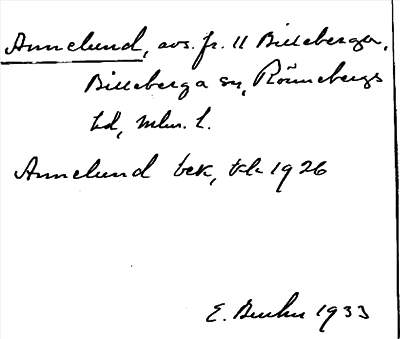 Annelund, avs. fr. 11 Billeberga,
Billeberga sn, Rönnebergs
hd, Mlm. l.
Annelund bek, tk 1926
E. 1933